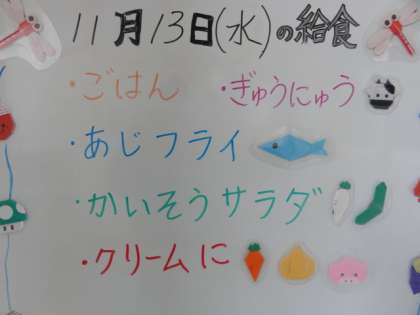 11月13日(水)の給食
・ごはん ・ぎゅうにゅう
・あじフライ
・かいそうサラダ
・クリームに